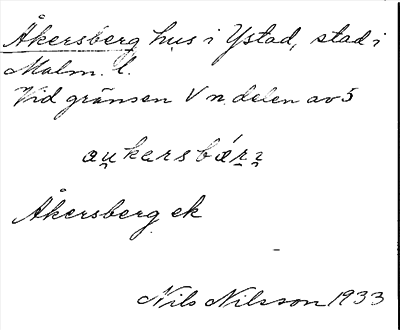 Åkersberg hus i Ystad, stad i
Malm. l.
Vid gränsen V n. delen av 5
au̯kersbár̥ɿ
Åkersberg ek
Nils Nilsson 1933